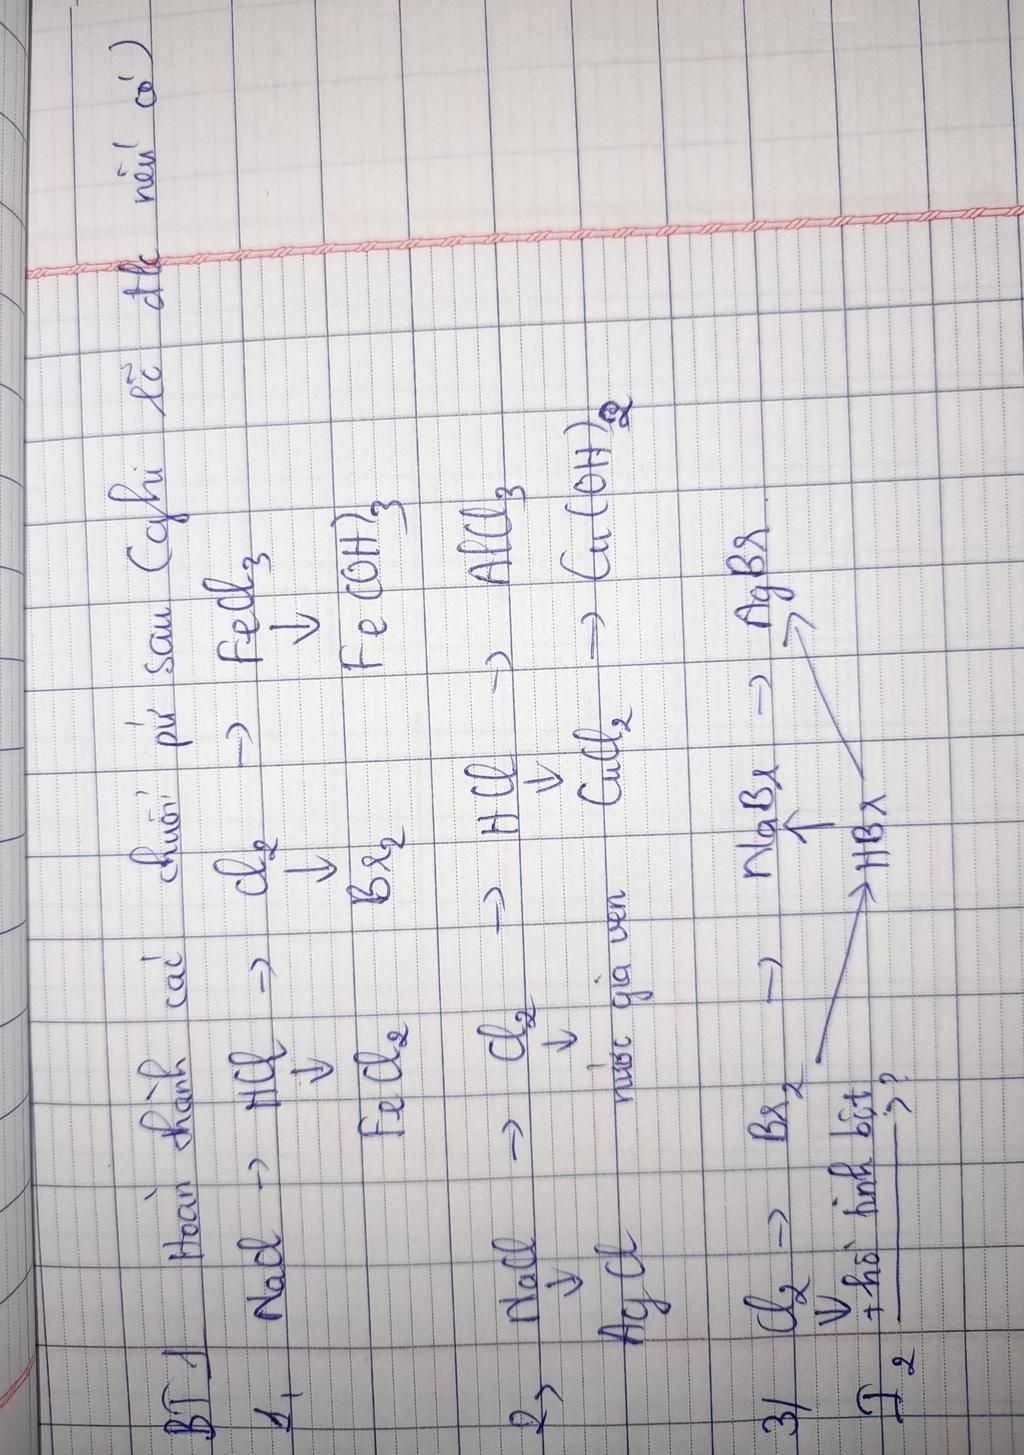 BT 1 Hoàn thành các chuỗi pứ sau (ghi rõ đk nếu có)
1, NaCl → HCl → Cl2 → FeCl3
↓ ↓ ↓
FeCl2 Br2 Fe(OH)3
2, NaCl → Cl2 → HCl → AlCl3
↓ ↓ ↓
AgCl nước gia ven CuCl2 → Cu(OH)2
3/ Cl2 → Br2 → NaBr → AgBr
↓ ↑
I2 + hồ tinh bột → ? HBr